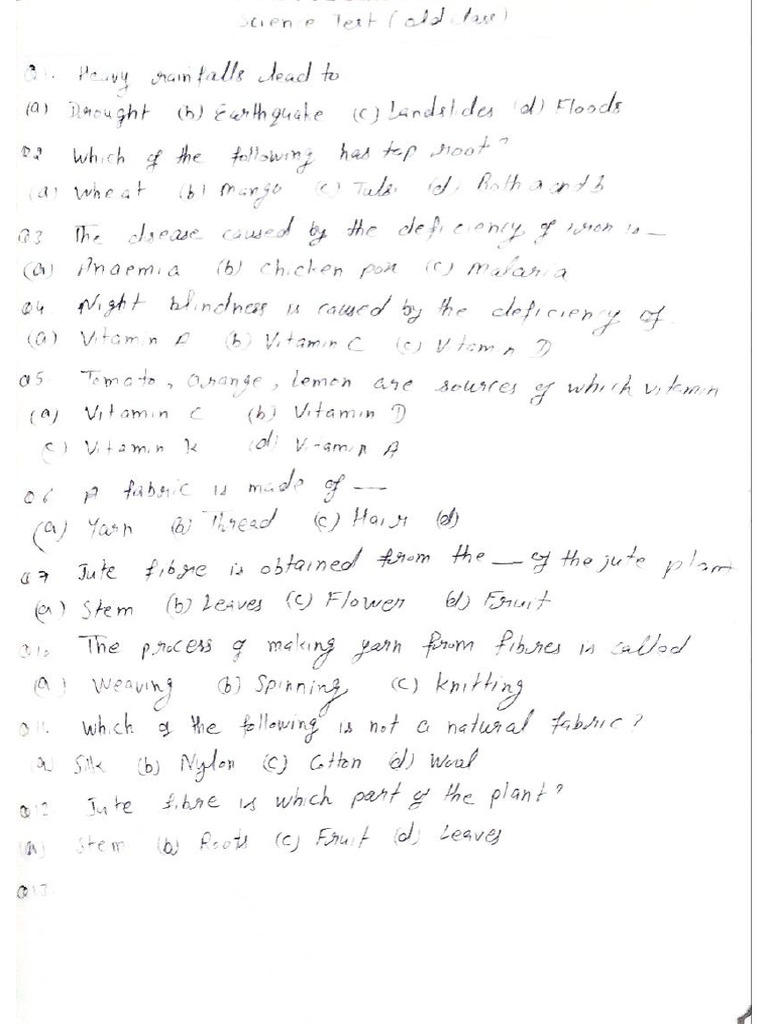 Science Test (old class)
Q1. Heavy rainfalls lead to
(a) Drought (b) Earthquake (c) Landslides (d) Floods
Q2 Which of the following has tap root?
(a) Wheat (b) Mango (c) Tulsi (d) Both a and b
Q3 The disease caused by the deficiency of iron is —
(a) Anaemia (b) Chicken pox (c) Malaria
Q4 Night blindness is caused by the deficiency of
(a) Vitamin A (b) Vitamin C (c) Vitamin D
Q5 Tomato, orange, lemon are sources of which vitamin
(a) Vitamin C (b) Vitamin D
(c) Vitamin K (d) Vitamin A
Q6 A fabric is made of —
(a) Yarn (b) Thread (c) Hair (d)
Q7 Jute fibre is obtained from the — of the jute plant
(a) Stem (b) Leaves (c) Flower (d) Fruit
Q10 The process of making yarn from fibres is called
(a) Weaving (b) Spinning (c) Knitting
Q11. Which of the following is not a natural fabric?
(a) Silk (b) Nylon (c) Cotton (d) Wool
Q12 Jute fibre is which part of the plant?
(a) Stem (b) Roots (c) Fruit (d) Leaves
Q13